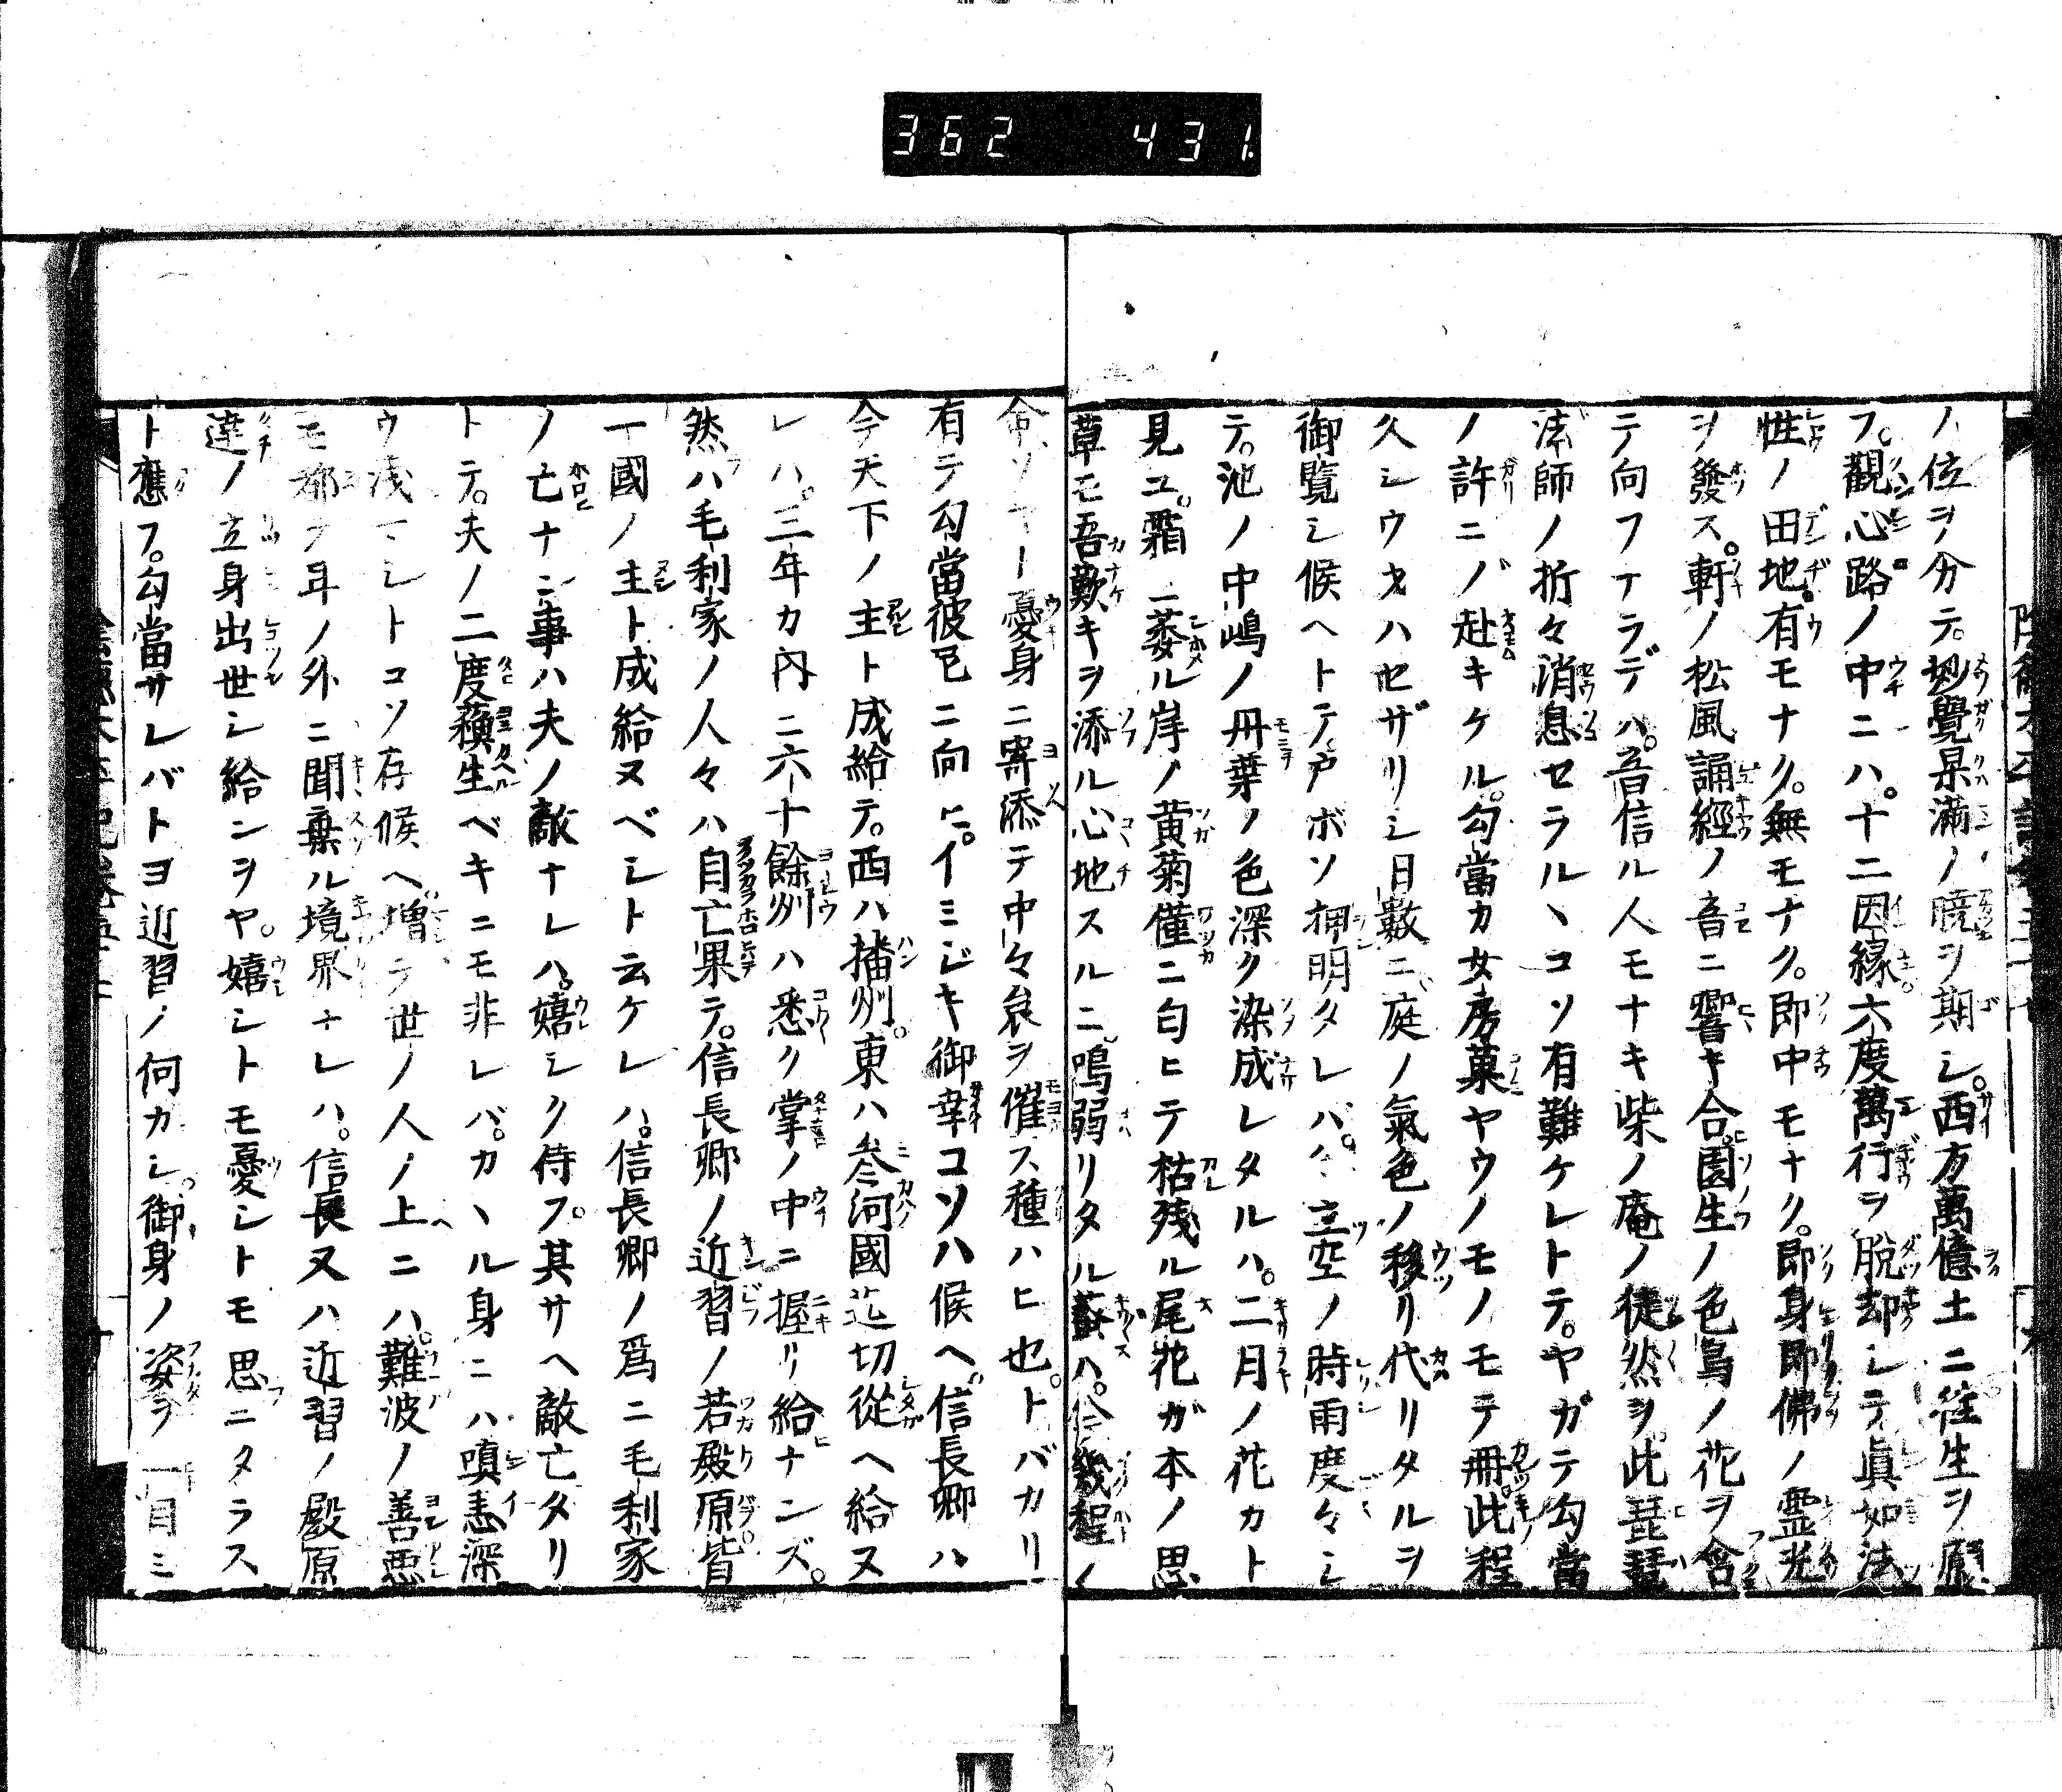 362 431.
ノ位ヲ分テ。妙覺果滿ノ暁ヲ期シ。西方萬億土ニ往生ヲ願
フ。觀心路ノ中ニハ。十二因縁六度萬行ヲ脱却シテ眞如法
性ノ田地。有モナク。無モナク。即中モナク。即身即佛ノ霊光
ヲ發ス。軒ノ松風誦經ノ音ニ響キ合園生ノ色鳥ノ花ヲ含
テ向フナラデハ。音信ル人モナキ柴ノ庵ノ徒然ヲ此琵琶
法師ノ折々消息セラルヽコソ有難ケレトテ。ヤガテ勾當
ノ許ニゾ赴キケル。勾當カ女房菓ヤウノモノモテ冊此程
久シウオハセザリシ日數ニ庭ノ氣色ノ移リ代リタルヲ
御覽シ候ヘトテ戸ボソ押明タレバ。立空ノ時雨度々シ
テ。池ノ中嶋ノ丹葉ノ色深ク染成レタルハ。二月ノ花カト
見ユ。霜ニ萎ル岸ノ黄菊僅ニ匂ヒテ枯残ル尾花ガ本ノ思
草モ吾歎キヲ添ル心地スルニ。鳴弱リタル蛬ハ。今幾程ノ
命ソヤト憂身ニ寄添テ中々哀ヲ催ス種ハヒ也。トバカリ
有テ勾當彼巳ニ向ヒ。イミジキ御幸コソハ候ヘ。信長卿ハ
今天下ノ主ト成給テ。西ハ播州。東ハ叄河國迄切從ヘ給ヌ
レハ。三年カ内ニ六十餘州ハ悉ク掌ノ中ニ握リ給ナンズ。
然ハ毛利家ノ人々ハ自亡果テ。信長卿ノ近習ノ若殿原皆
一國ノ主ト成給ヌベシト云ケレハ。信長卿ノ爲ニ毛利家
ノ亡ナン事ハ夫ノ敵ナレハ。嬉シク侍フ。其サヘ敵亡タリ
トテ。夫ノ二度蘓生ベキニモ非レバ。カヽル身ニハ嗔恚深
ウ淺マシトコソ存候ヘ。増テ世ノ人ノ上ニハ。難波ノ善悪
モ都テ耳ノ外ニ聞棄ル境界ナレハ。信長又ハ近習ノ殿原
達ノ立身出世シ給ンヲヤ。嬉シトモ憂シトモ思ニタラス
ト應フ。勾當サレバトヨ近習ノ何カシ。御身ノ姿ヲ一目ミ